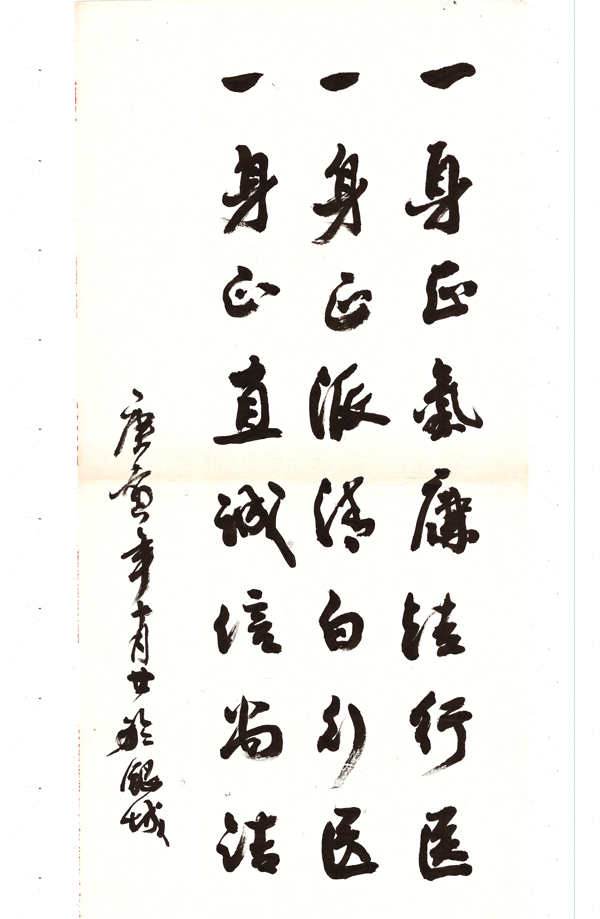 一身正氣廉洁行医
一身正派清白行医
一身正直诚信尚洁
庚寅年十月廿於银城